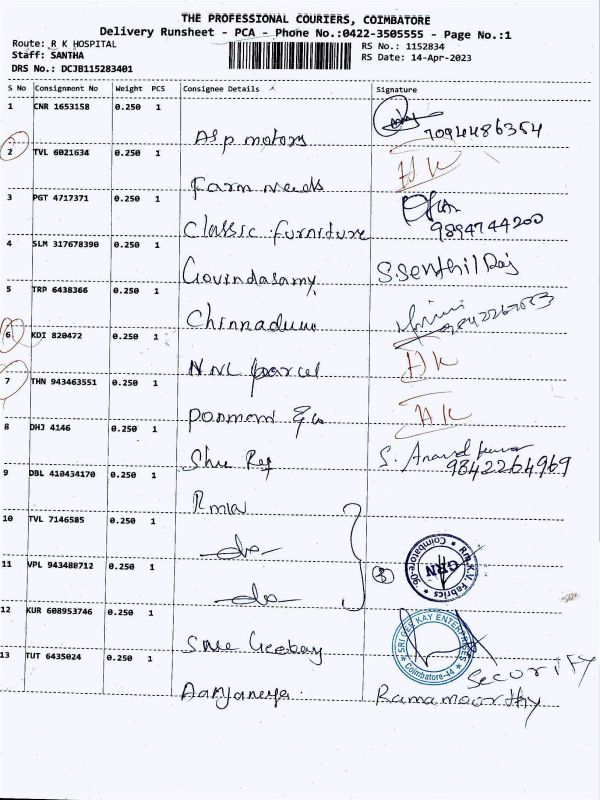 THE PROFESSIONAL COURIERS, COIMBATORE
Delivery Runsheet - PCA - Phone No.:0422-3505555 - Page No.:1
Route: R K HOSPITAL
Staff: SANTHA
DRS No.: DCJB115283401
RS No.: 1152834
RS Date: 14-Apr-2023
S No Consignment No Weight PCS Consignee Details Signature
1 CNR 1653158 0.250 1
Asp motors 7094486354
2 TVL 6021634 0.250 1
Farm needs
3 PGT 4717371 0.250 1
Classic furniture 9894744200
4 SLM 317678390 0.250 1
Govindasamy S.Senthil Raj
5 TRP 6438366 0.250 1
Chinnadurai
6 KDI 820472 0.250 1
NNL parcel
7 THN 943463551 0.250 1
8 DHJ 4146 0.250 1
S. Anand kumar
9842264969
9 DBL 410434170 0.250 1
10 TVL 7146585 0.250 1
-do-
11 VPL 943488712 0.250 1
-do-
Rm.K.V. Fabrics
GRN
Coimbatore-90
12 KUR 608953746 0.250 1
SRI GEE KAY ENTERPRISES
Coimbatore-44
13 TUT 6435024 0.250 1
Security
Aanjaneya Ramamoorthy